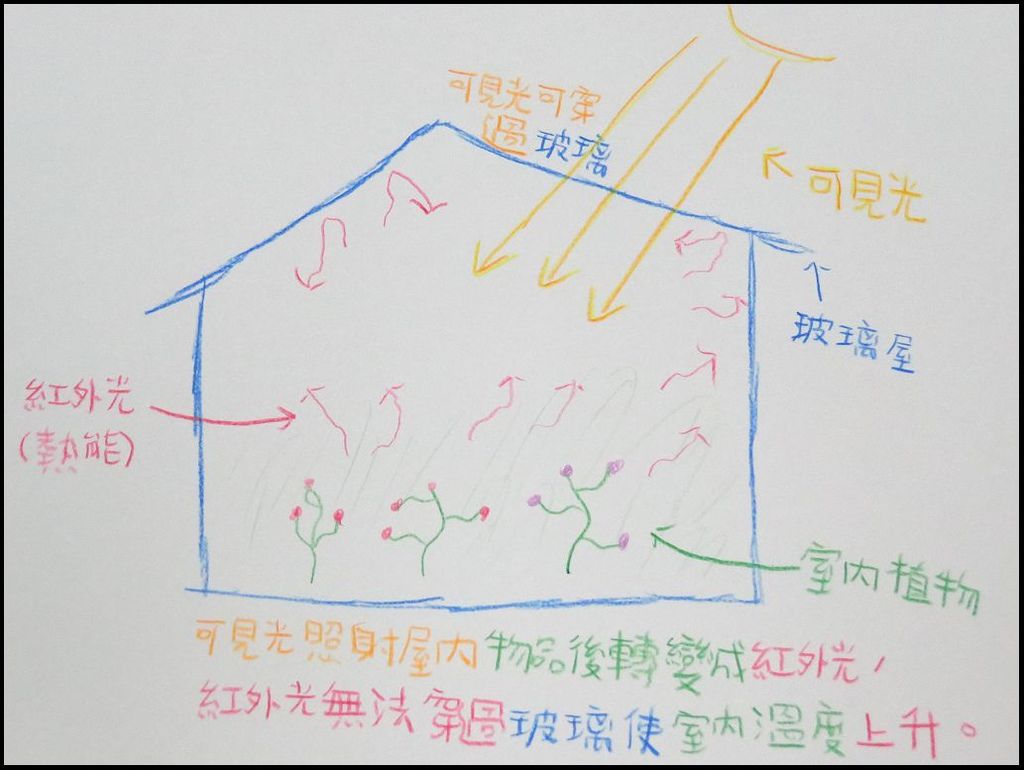 可見光可穿
過玻璃
可見光
玻璃屋
紅外光
(熱能)
室內植物
可見光照射屋內物品後轉變成紅外光，
紅外光無法穿過玻璃使室內溫度上升。